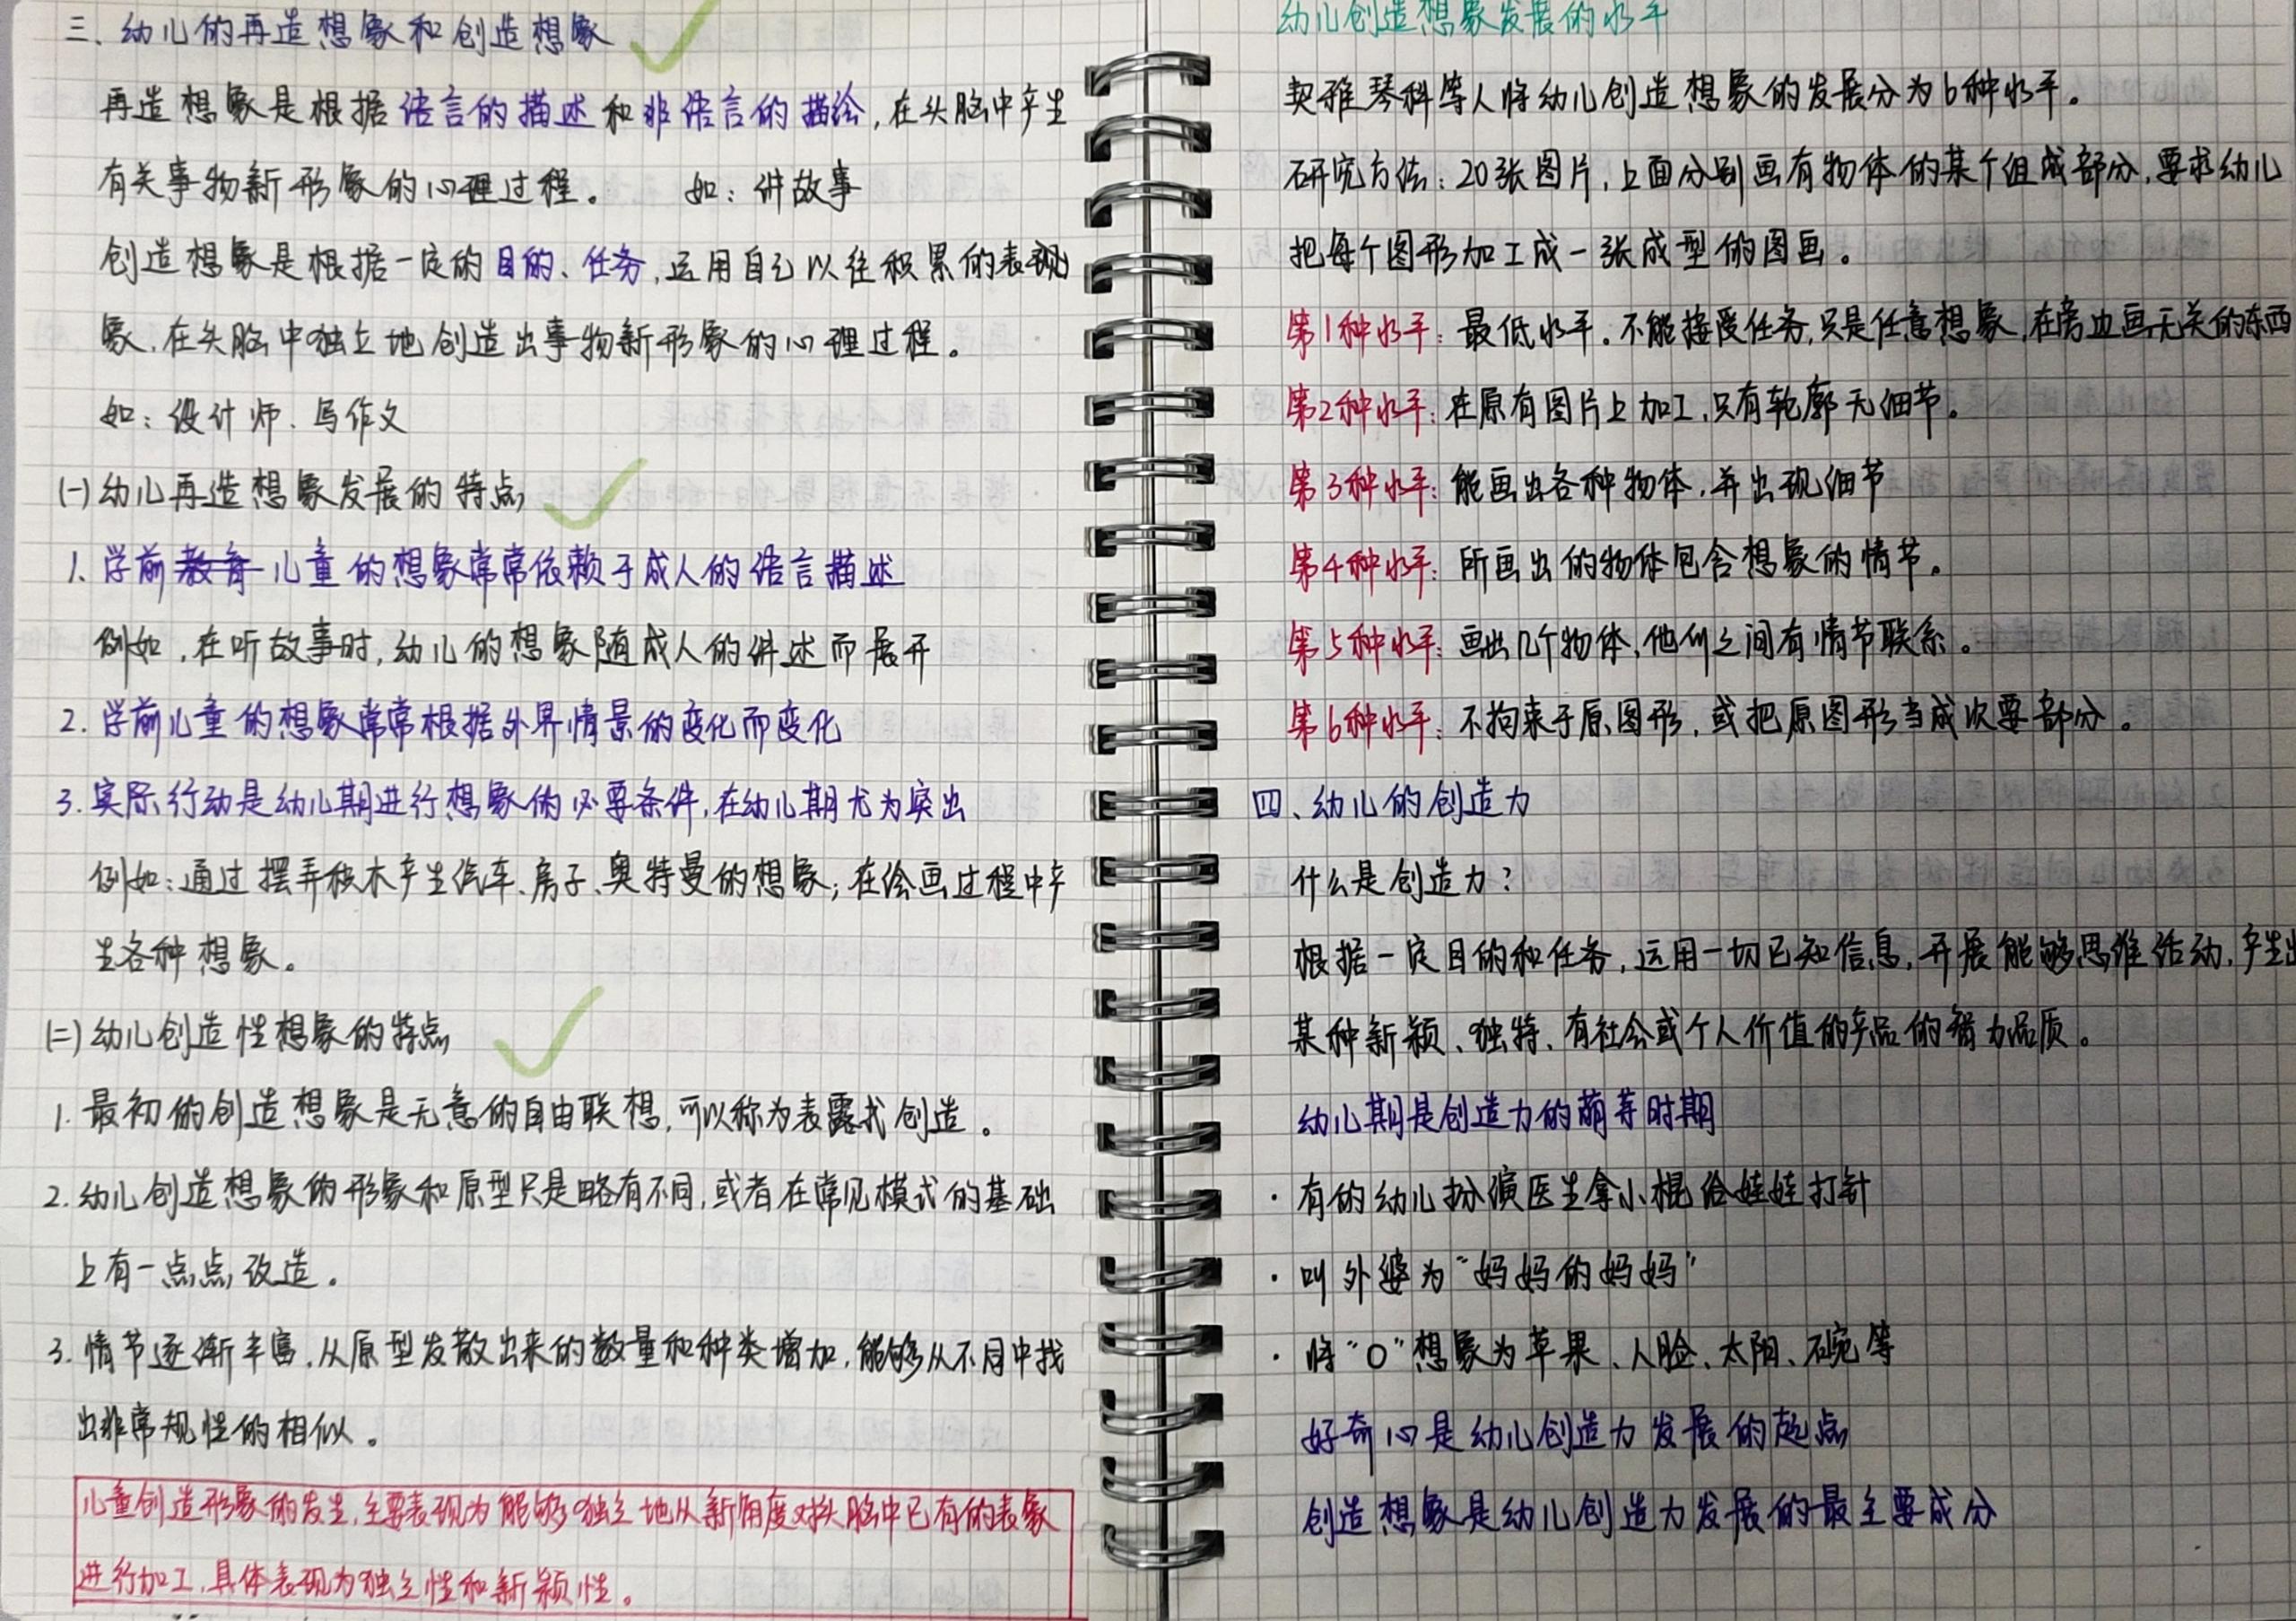 三、幼儿的再造想象和创造想象
再造想象是根据语言的描述和非语言的描绘,在头脑中产生
有关事物新形象的心理过程。 如:讲故事
创造想象是根据一定的目的、任务,运用自己以往积累的表现
象,在头脑中独立地创造出事物新形象的心理过程。
如:设计师、写作文
(一)幼儿再造想象发展的特点
1、学前教育儿童的想象常常依赖于成人的语言描述
例如,在听故事时,幼儿的想象随成人的讲述而展开
2.学前儿童的想象常常根据外界情景的变化而变化
3.实际行动是幼儿期进行想象的必要条件,在幼儿期尤为突出
例如:通过摆弄积木产生汽车、房子、奥特曼的想象;在绘画过程中产
生各种想象。
(二)幼儿创造性想象的特点
1.最初的创造想象是无意的自由联想,可以称为表露式创造。
2.幼儿创造想象的形象和原型只是略有不同,或者在常见模式的基础
上有一点点改造。
3.情节逐渐丰富,从原型发散出来的数量和种类增加,能够从不同中找
出非常规性的相似。
儿童创造形象的发生,主要表现为能够独立地从新角度对头脑中已有的表象
进行加工,具体表现为独立性和新颖性。
幼儿创造想象发展的水平
契雅琴科等人将幼儿创造想象的发展分为6种水平。
研究方法:20张图片,上面分别画有物体的某个组成部分,要求幼儿
把每个图形加工成一张成型的图画。
第1种水平:最低水平。不能接受任务,只是任意想象,在旁边画无关的东西
第2种水平:在原有图片上加工,只有轮廓无细节。
第3种水平:能画出各种物体,并出现细节
第4种水平:所画出的物体包含想象的情节。
第5种水平:画出几个物体,他们之间有情节联系。
第6种水平:不拘束于原图形,或把原图形当成次要部分。
四、幼儿的创造力
什么是创造力?
根据一定目的和任务,运用一切已知信息,开展能够思维活动,产生出
某种新颖、独特、有社会或个人价值的产品的智力品质。
幼儿期是创造力的萌芽时期
·有的幼儿扮演医生拿小棍给娃娃打针
·叫外婆为“妈妈的妈妈”
·将“O”想象为苹果、人脸、太阳、碗等
好奇心是幼儿创造力发展的起点
创造想象是幼儿创造力发展的最主要成分